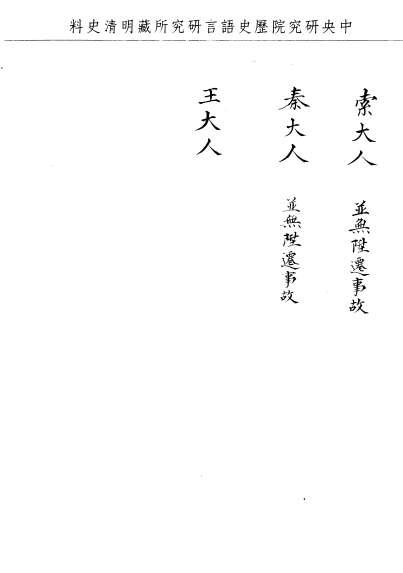 中央研究院歷史語言研究所藏明清史料
索大人
並無陞遷事故
秦大人
並無陞遷事故
王大人